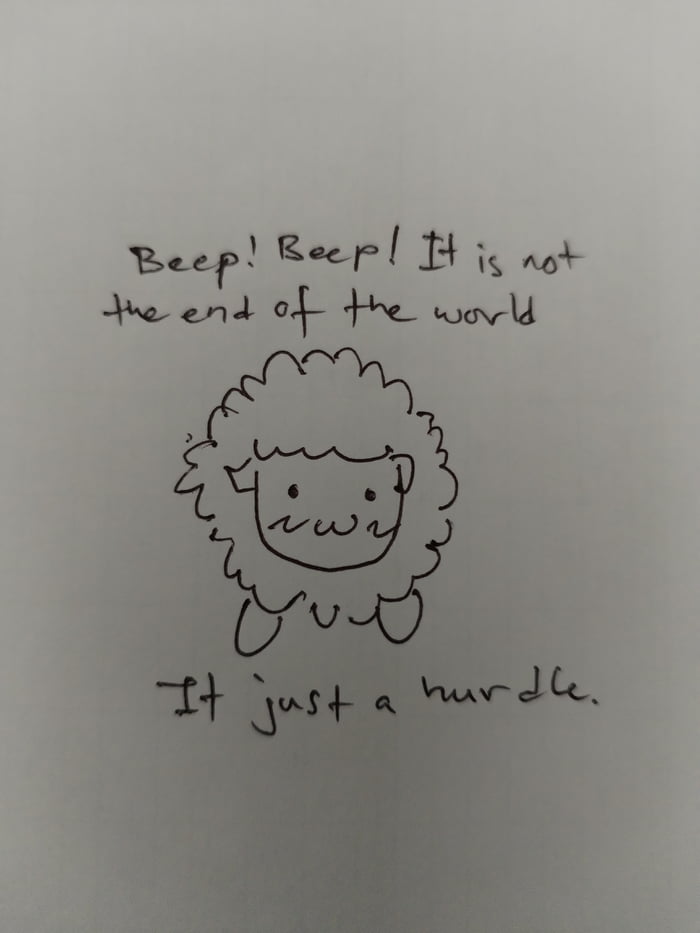 Beep! Beep! It is not
the end of the world
It just a hurdle.